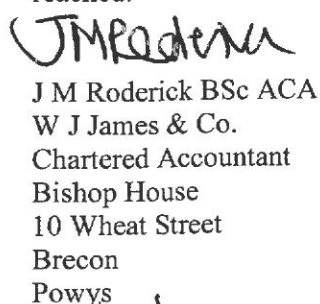 reached.
JMRoderick
J M Roderick BSc ACA
W J James & Co.
Chartered Accountant
Bishop House
10 Wheat Street
Brecon
Powys